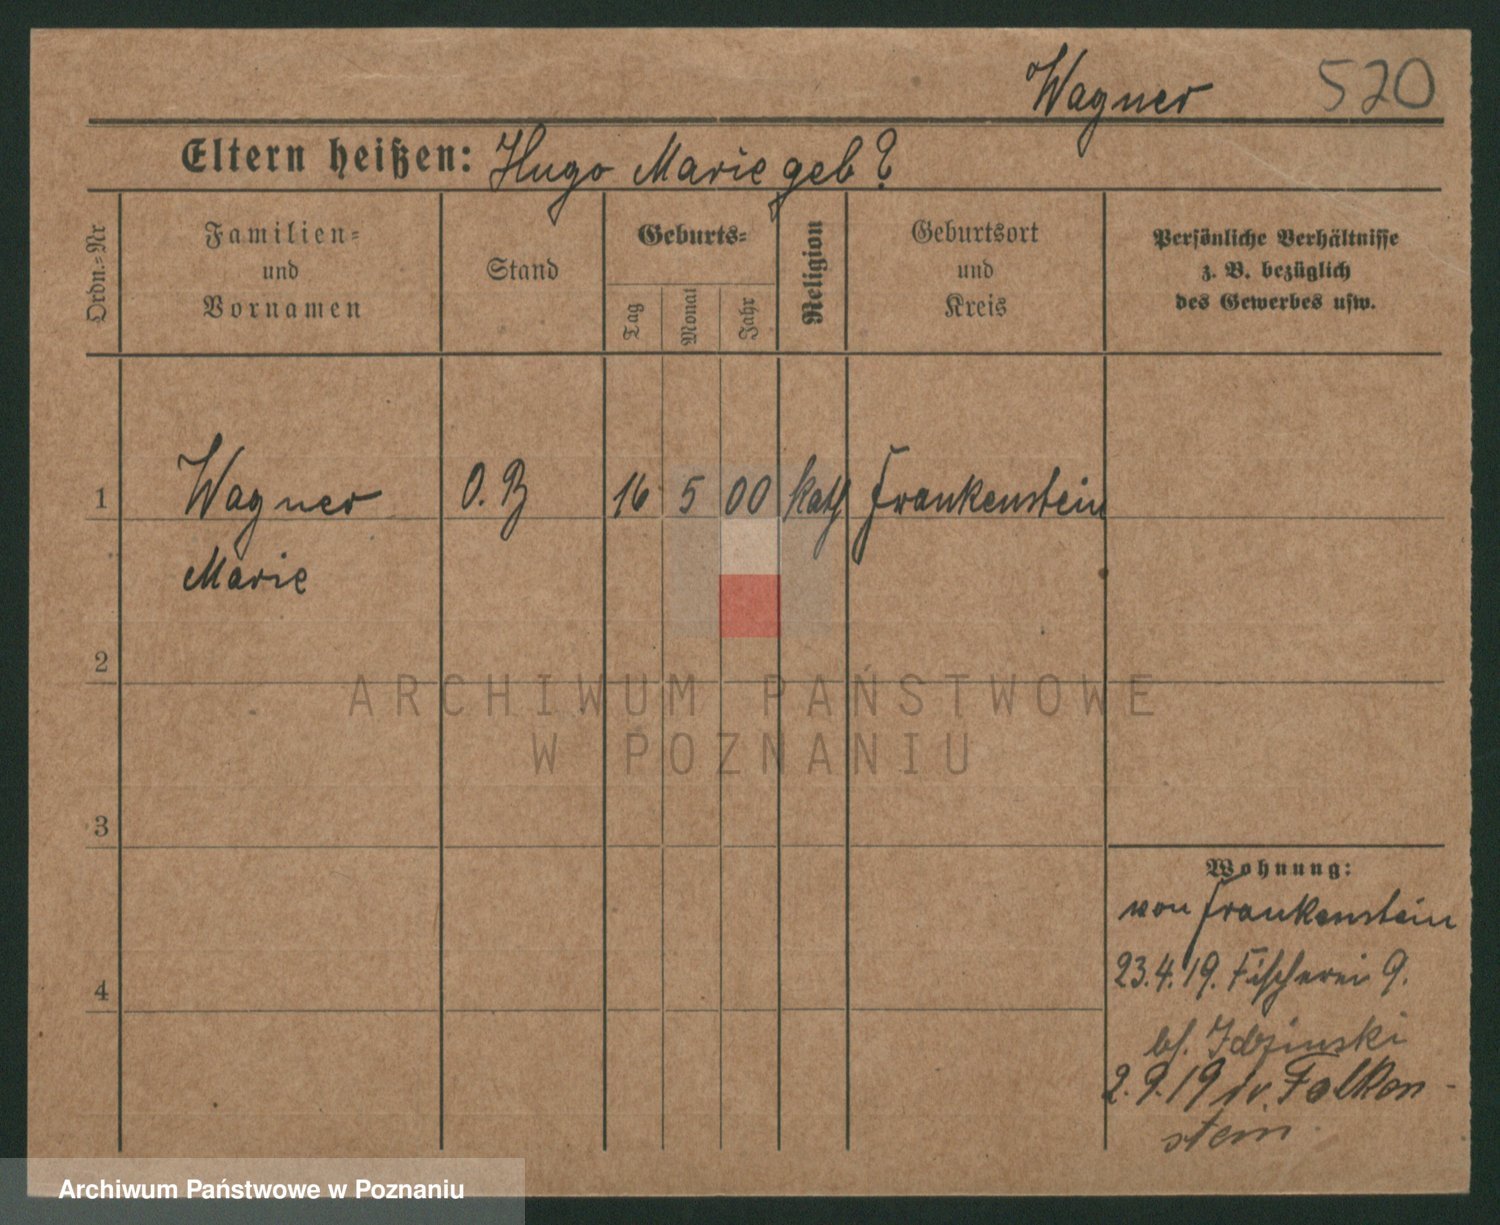 Wagner 520
Eltern heißen: Hugo Marie geb?
Ordn.=Nr
Familien=
und
Vornamen
Stand
Geburts=
Tag
Monat
Jahr
Religion
Geburtsort
und
Kreis
Persönliche Verhältnisse
z. B. bezüglich
des Gewerbes usw.
1 Wagner O.B 16 5 00 kath Frankenstein
Marie
2
ARCHIWUM PAŃSTWOWE
W POZNANIU
3
Wohnung:
von Frankenstein
23.4.19. Fischerei 9.
4
bf. Idzinski
2.9.19 n. Falken-
stein.
Archiwum Państwowe w Poznaniu